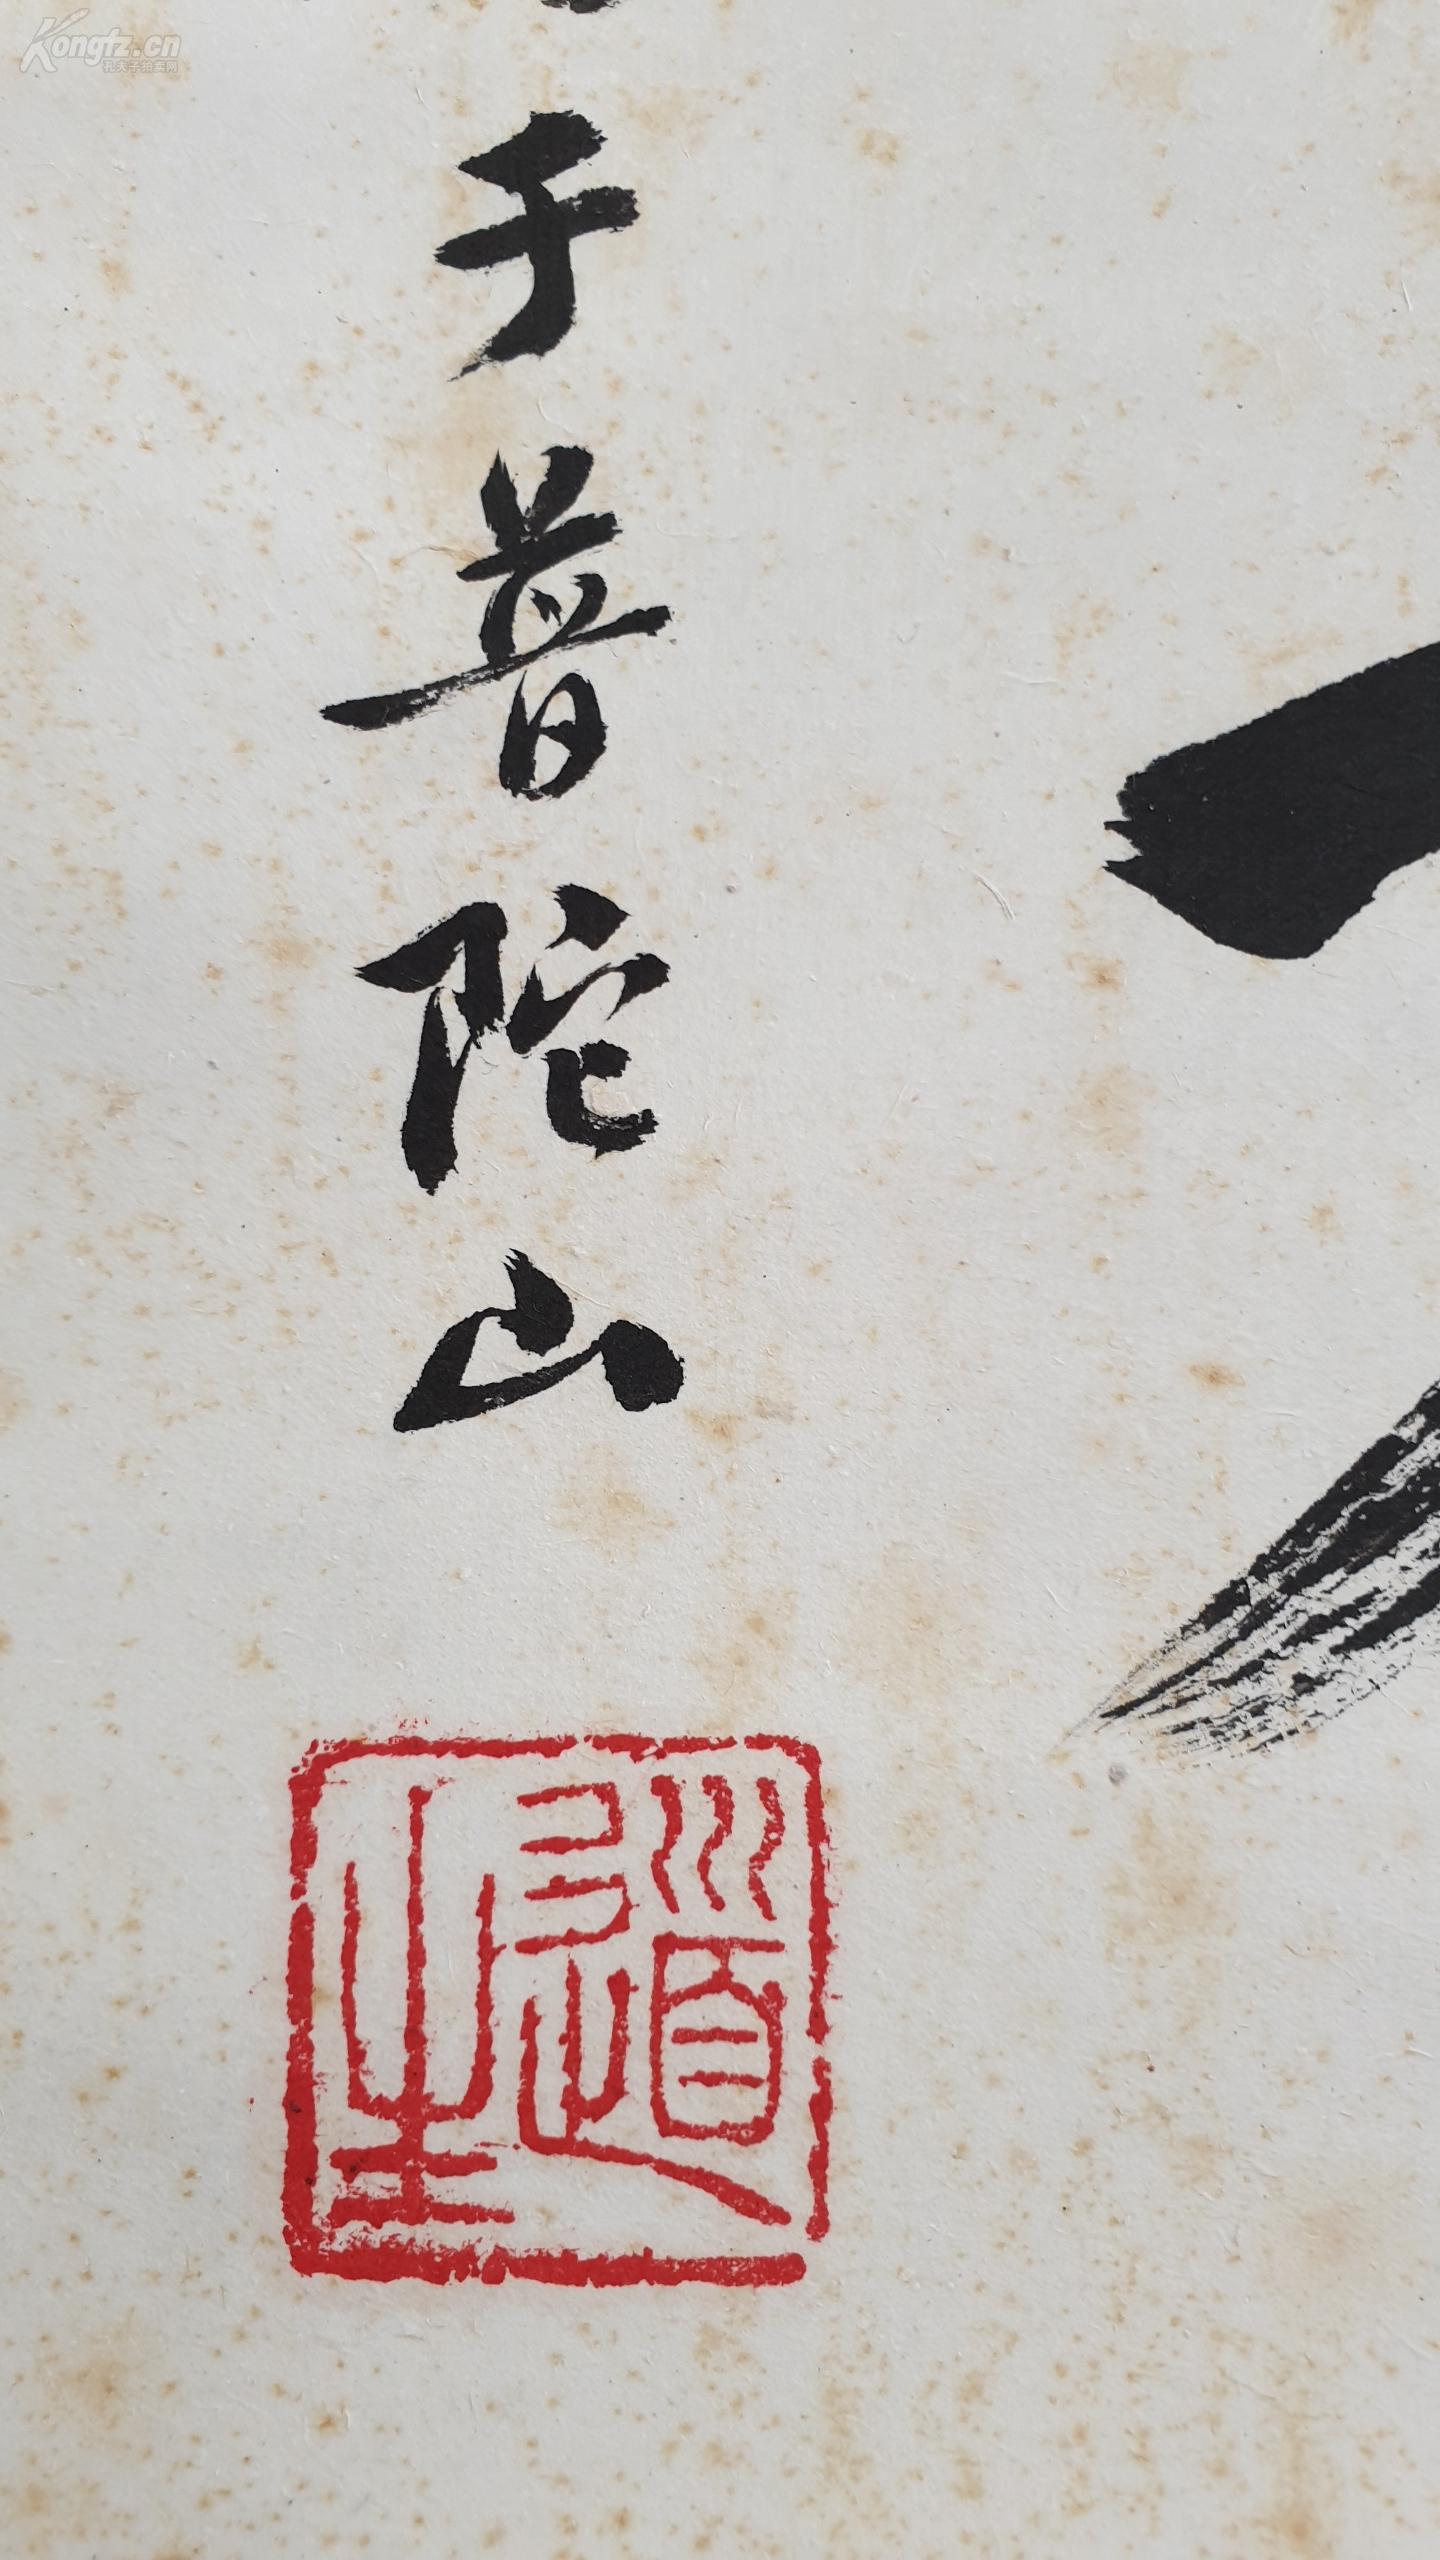 Kongfz.cn
孔夫子拍卖网
于普陀山
道生